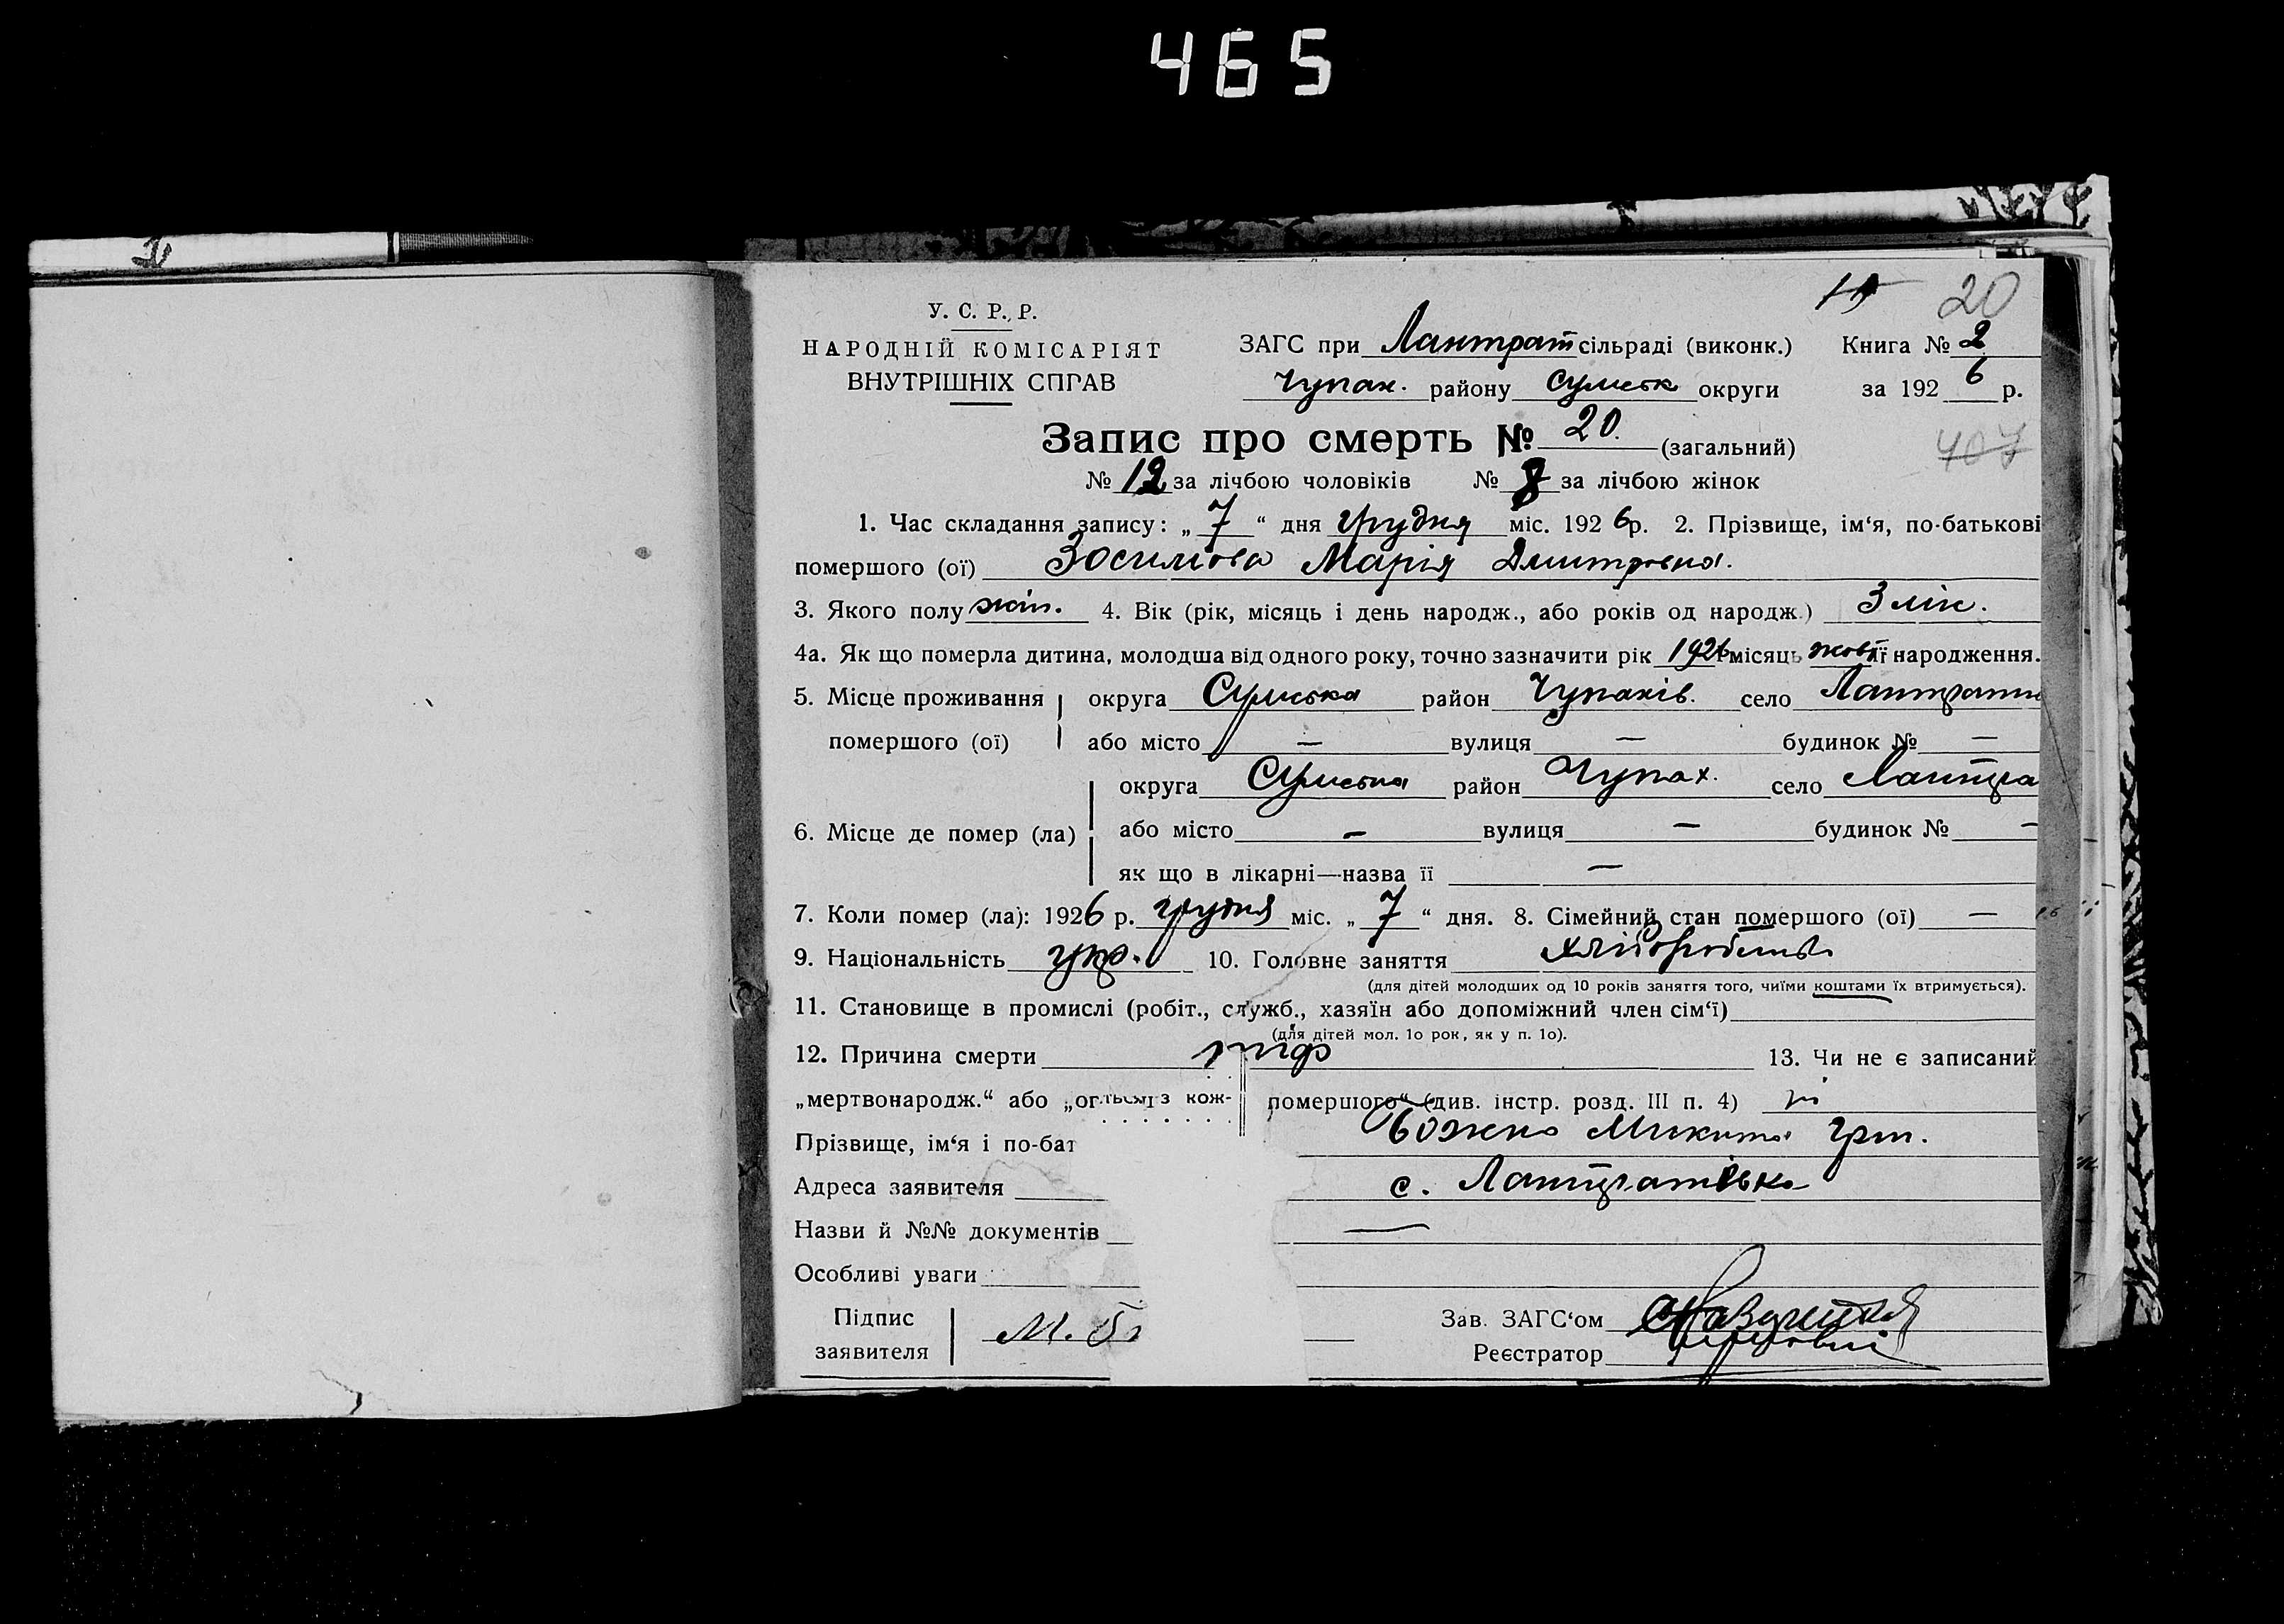 465
20
У. С. Р. Р.
НАРОДНІЙ КОМІСАРІЯТ
ВНУТРІШНІХ СПРАВ
ЗАГС при Лантрат сільраді (виконк.) Книга № 2
Чупах. району Сумськ округи за 1926 р.
Запис про смерть № 20. (загальний)
407
№ 12 за лічбою чоловіків № 8 за лічбою жінок
1. Час складання запису: „ 7 “ дня грудня міс. 1926р. 2. Прізвище, ім‘я, по-батькові
помершого (ої) Зосимова Марія Дмитровна.
3. Якого полу жін. 4. Вік (рік, місяць і день народж., або років од народж.) 3 міс.
4а. Як що померла дитина, молодша від одного року, точно зазначити рік 1926 місяць жовт її народження.
5. Місце проживання округа Сумська район Чупахів. село
помершого (ої) або місто — вулиця — будинок № —
округа Сумська район Чупах. село Лантра
6. Місце де помер (ла) або місто — вулиця — будинок № —
як що в лікарні—назва її —
7. Коли помер (ла): 1926 р. грудня міс. „ 7 “ дня. 8. Сімейний стан помершого (ої) —
9. Національність укр. 10. Головне заняття хліборобств
(для дітей молодших од 10 років заняття того, чиїми коштами їх втримується).
11. Становище в промислі (робіт., служб., хазяїн або допоміжний член сім‘ї)
(для дітей мол. 1о рок, як у п. 1о).
12. Причина смерти тиф 13. Чи не є записаний
„мертвонародж.“ або „ог ться з кож- помершого“ (див. інстр. розд. III п. 4) ні
Прізвище, ім‘я і по-бат Божко Микита Гри.
Адреса заявителя с. Лантратівка
Назви й №№ документів —
Особливі уваги
Підпис
заявителя М. Б
Зав. ЗАГС‘ом
Реєстратор